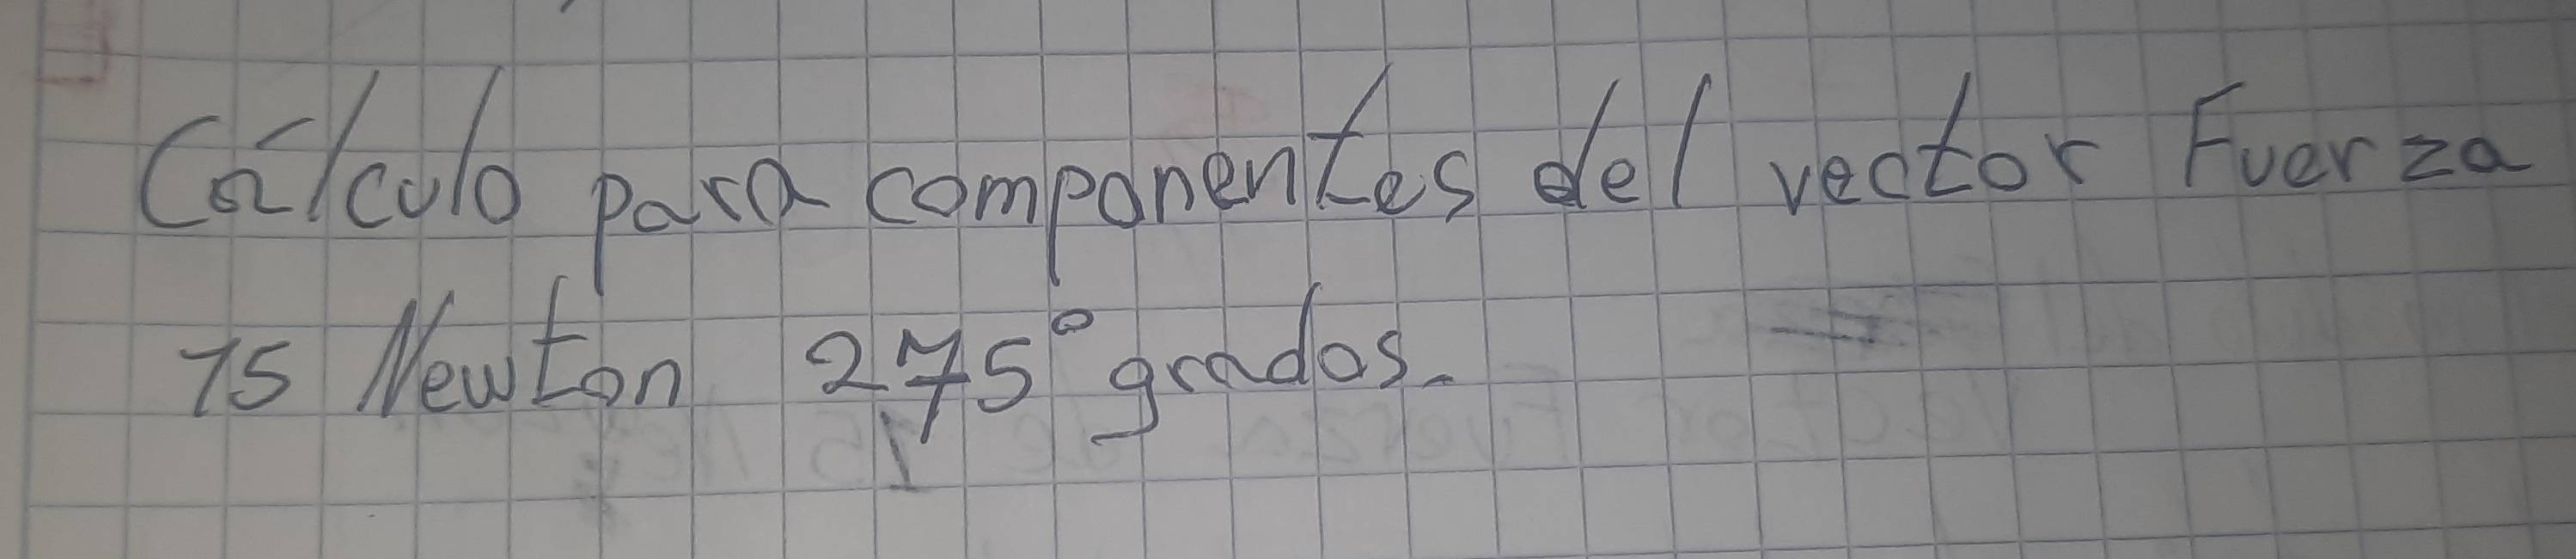 Cálculo para componentes del vector Fuerza
75 Newton 275° grados.